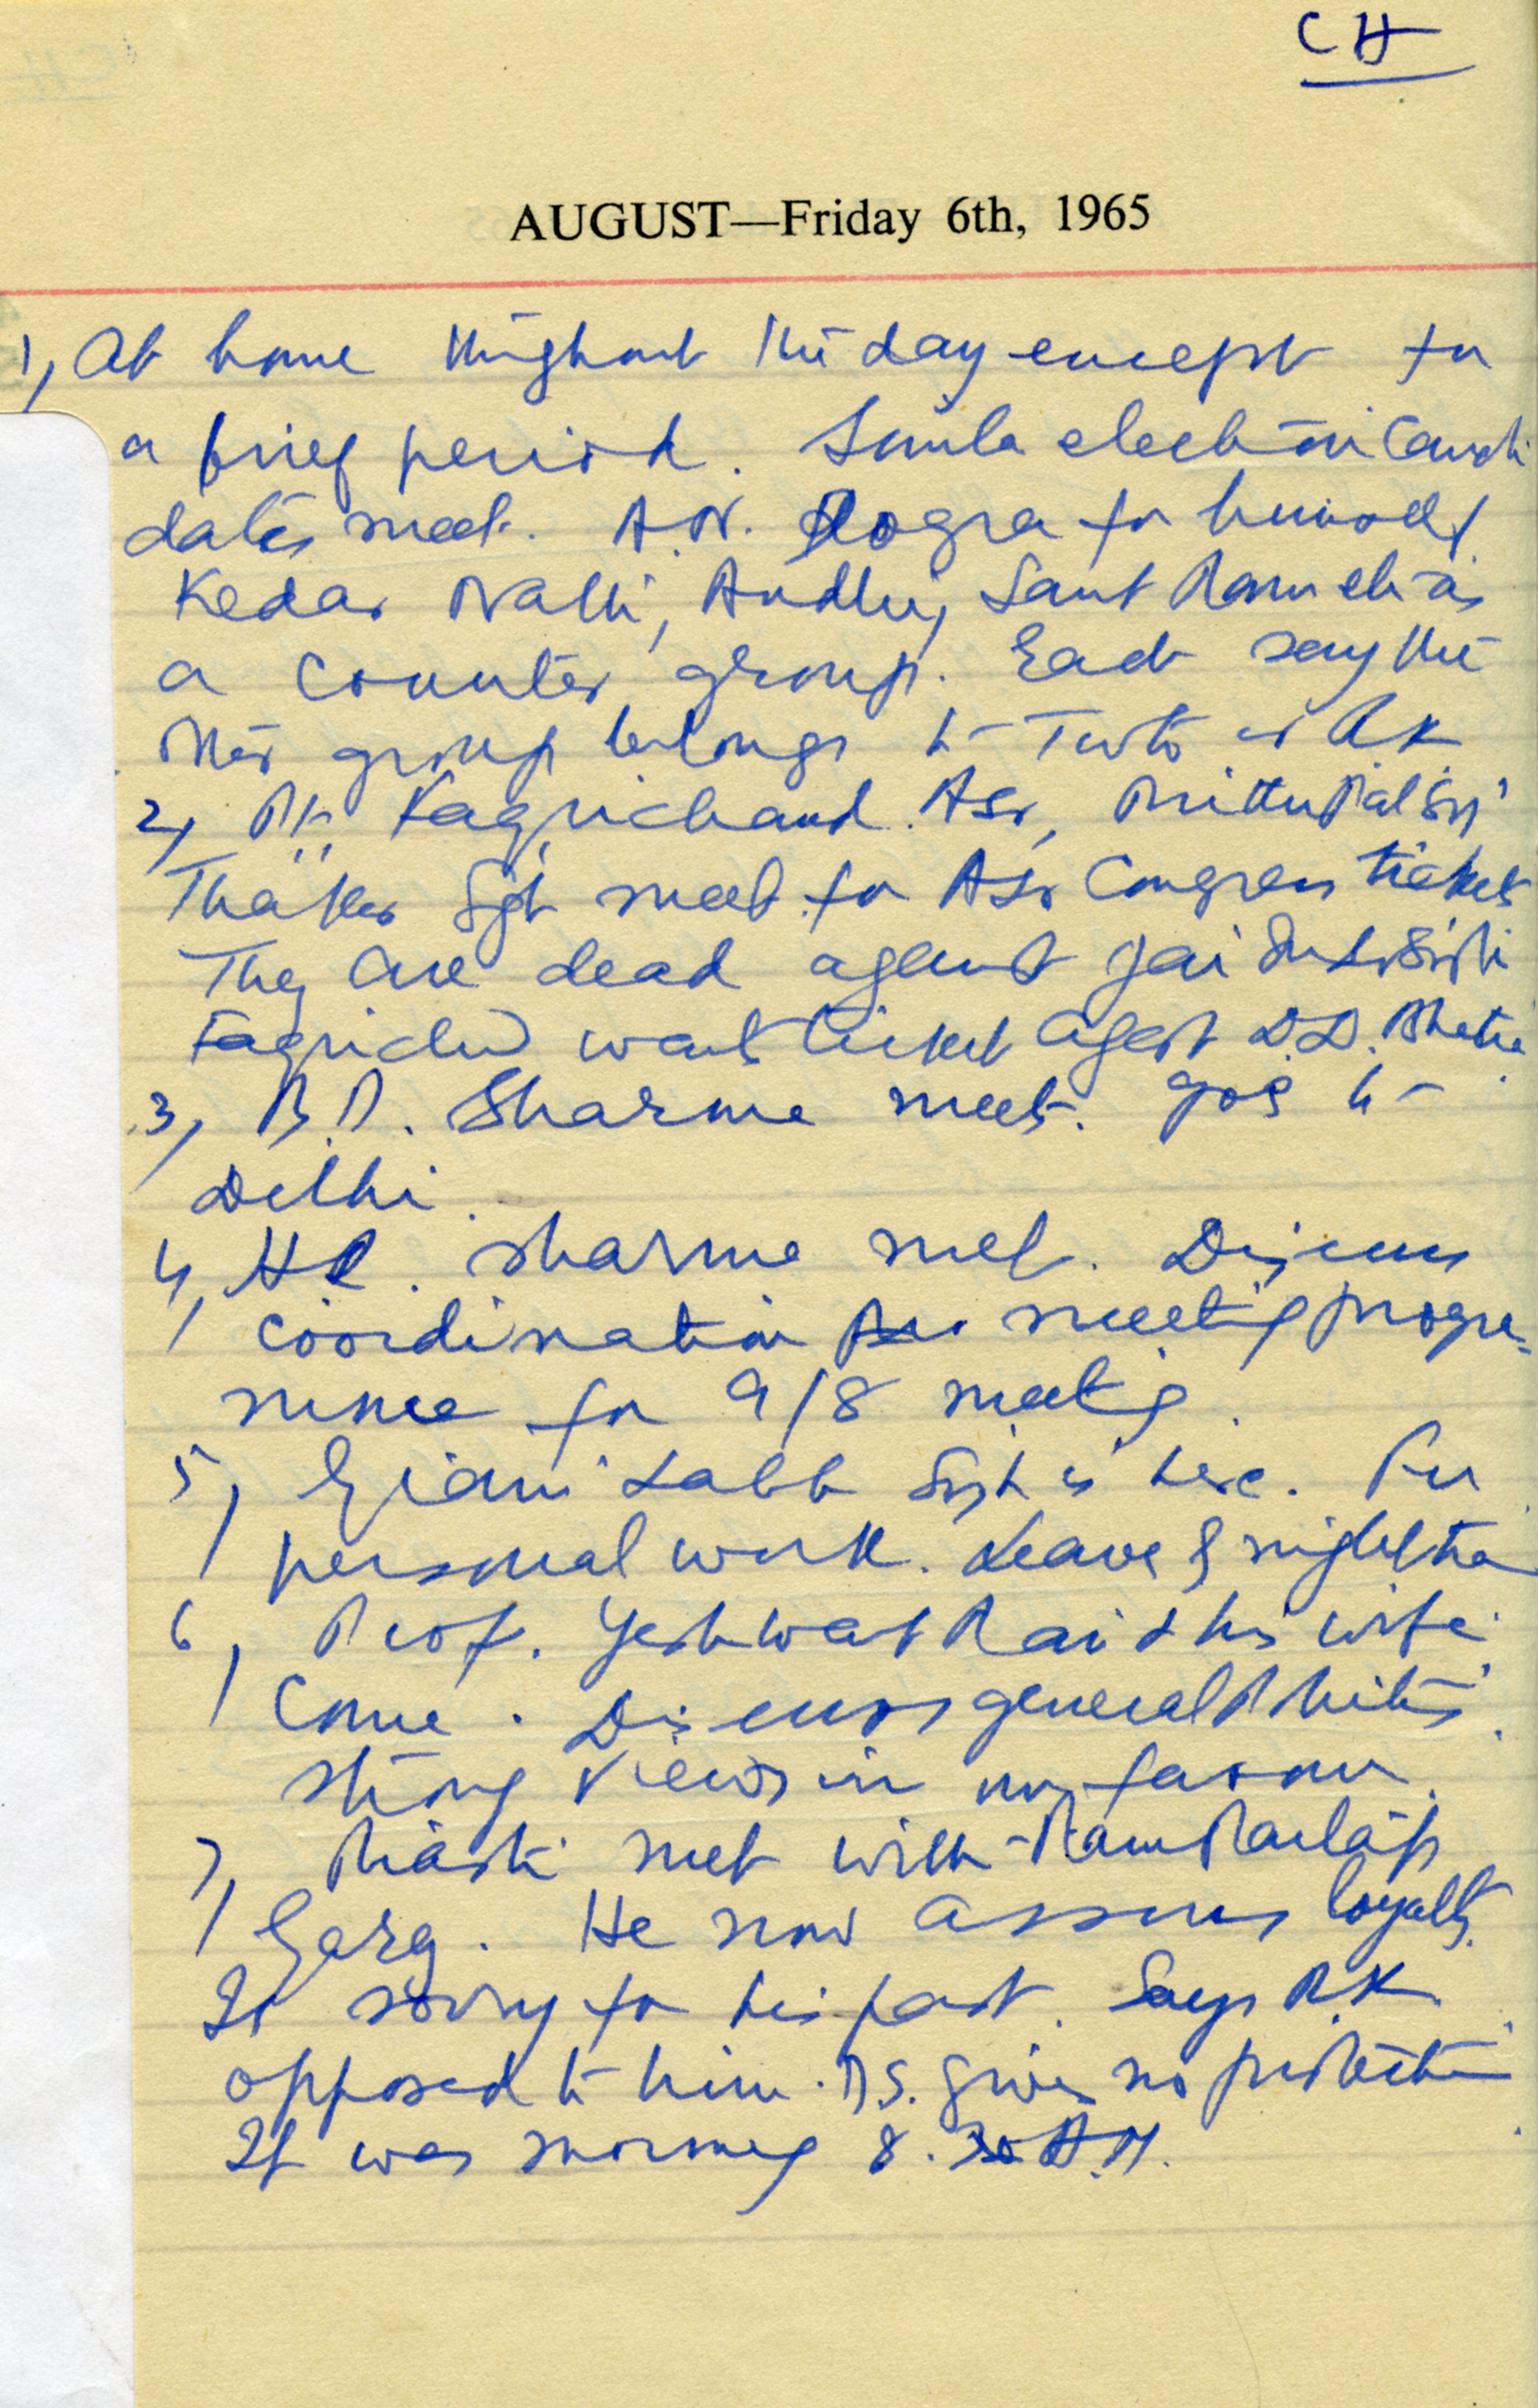 CH
AUGUST—Friday 6th, 1965
1, At home throughout the day except for
a brief period. Simla election Candi
dates meet. A.N. Dogra for himself
Kedar Nath, Sant Ram etc as
a Counter group. Each say the
other group belongs to or R.K.
2, Pt. Faqirchand Asr,
Thaker Sgh meet for Asr Congress tickets
They are dead against Jai
Faqirchd want ticket agast D.D. Bhatia
3, B.D. Sharma meets. goes to
Delhi.
4, H.R. Sharma met. Discuss
Coordination meeting progra-
mme for 9/8 meeting.
5, Giani Labh Sigh is here. For
personal work. Leave by night train
6, Prof. Yeshwant Rai & his wife
Come. Discuss general Politics
strong views in my favour.
7, met with Ram Partap
Garg. He now assures loyalty.
Is sorry for his past. Says R.K.
opposed to him. D.S. gives no protection
It was morning 8.30 A.M.